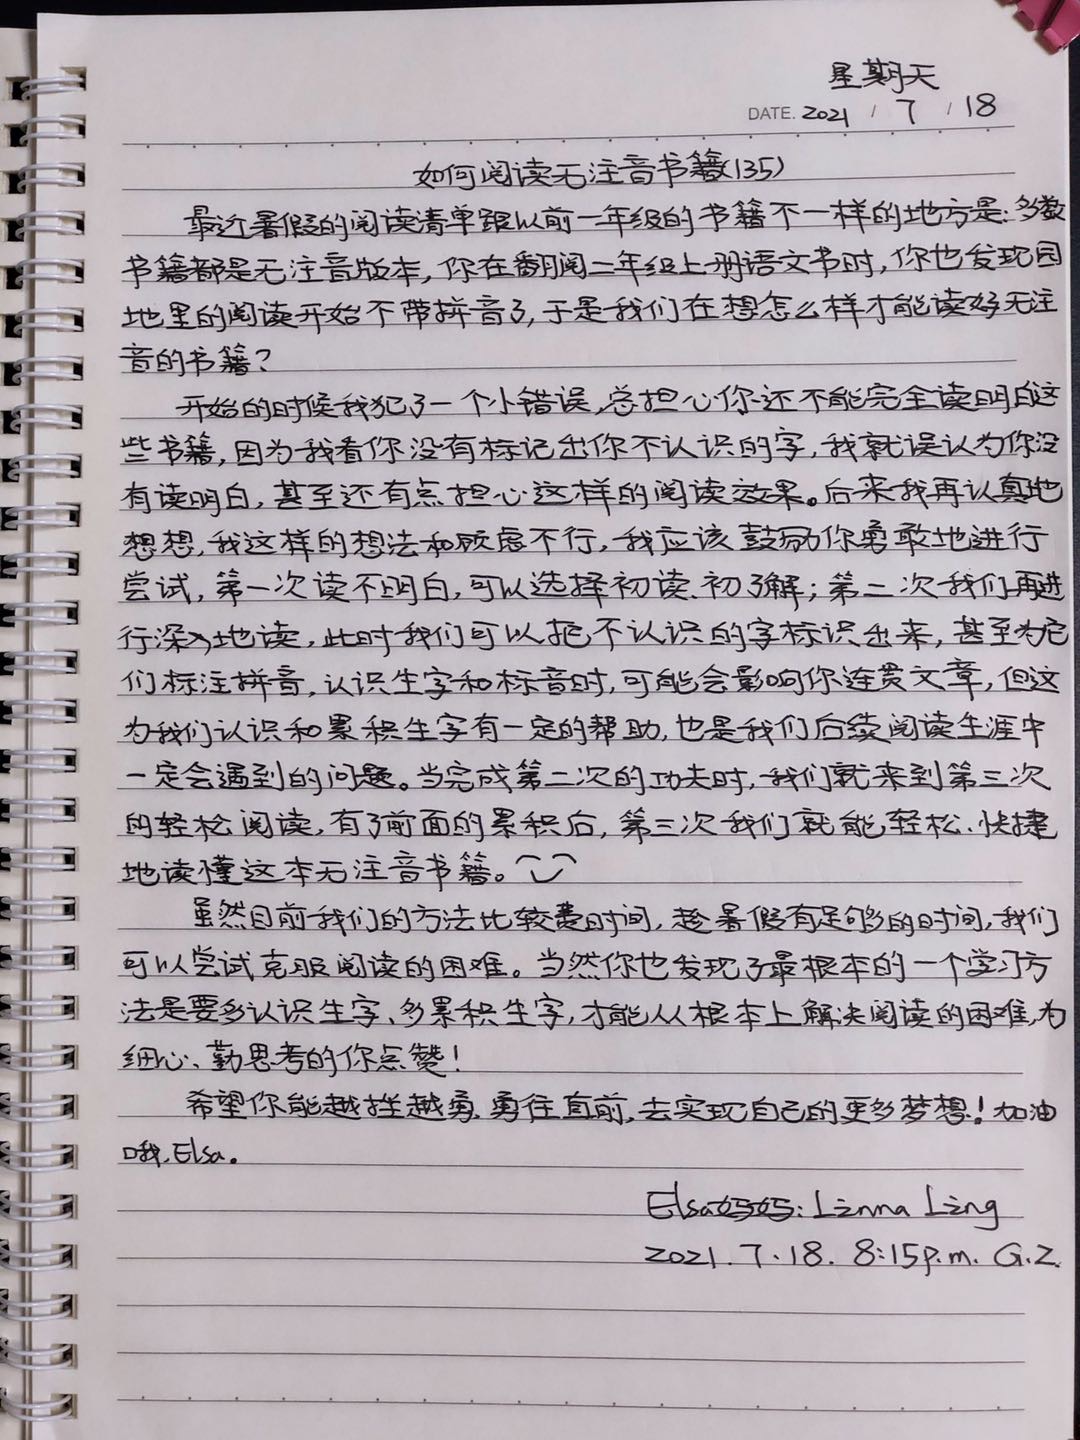 星期天
DATE. 2021 / 7 / 18
如何阅读无注音书籍(135)
最近暑假的阅读清单跟以前一年级的书籍不一样的地方是:多数
书籍都是无注音版本,你在翻阅二年级上册语文书时,你也发现园
地里的阅读开始不带拼音了,于是我们在想怎么样才能读好无注
音的书籍?
开始的时候我犯了一个小错误,总担心你还不能完全读明白这
些书籍,因为我看你没有标记出你不认识的字,我就误认为你没
有读明白,甚至还有点担心这样的阅读效果。后来我再认真地
想想,我这样的想法和顾虑不行,我应该鼓励你勇敢地进行
尝试,第一次读不明白,可以选择初读、初了解;第二次我们再进
行深入地读,此时我们可以把不认识的字标识出来,甚至为它
们标注拼音,认识生字和标音时,可能会影响你连贯文章,但这
为我们认识和累积生字有一定的帮助,也是我们后续阅读生涯中
一定会遇到的问题。当完成第二次的功夫时,我们就来到第三次
的轻松阅读,有了前面的累积后,第三次我们就能轻松、快捷
地读懂这本无注音书籍。
虽然目前我们的方法比较费时间,趁暑假有足够的时间,我们
可以尝试克服阅读的困难。当然你也发现了最根本的一个学习方
法是要多认识生字、多累积生字,才能从根本上解决阅读的困难,为
细心、勤思考的你点赞!
希望你能越挫越勇,勇往直前,去实现自己的更多梦想!加油
哦,Elsa。
Elsa妈妈: Linna Ling
2021.7.18. 8:15p.m. G.Z.